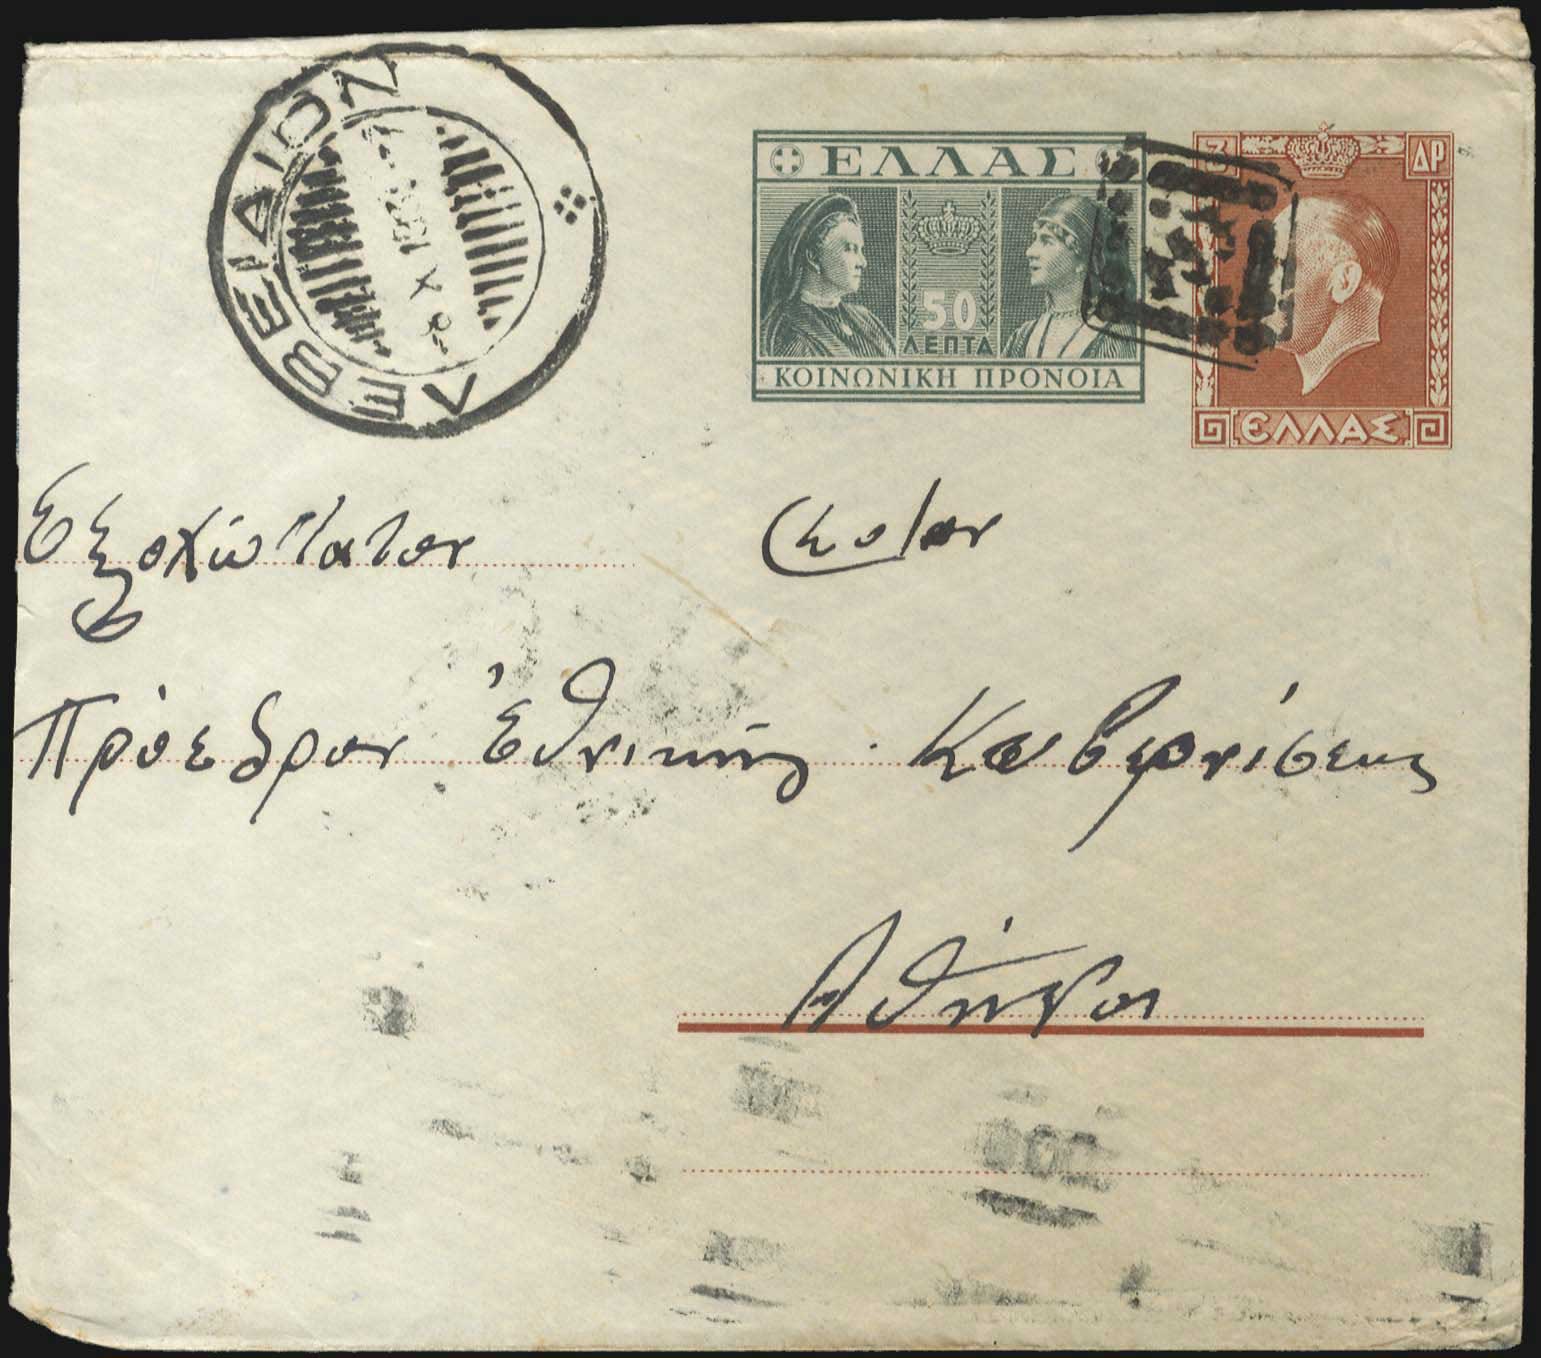 ΛΕΒΕΙΔΙΟΝ
8 Χ
ΕΛΛΑΣ
50
ΛΕΠΤΑ
ΚΟΙΝΩΝΙΚΗ ΠΡΟΝΟΙΑ
3 ΔΡ
ΕΛΛΑΣ
Εξοχώτατον
Πρόεδρον Ἐθνικής Κυβερνήσεως
Αθήνας